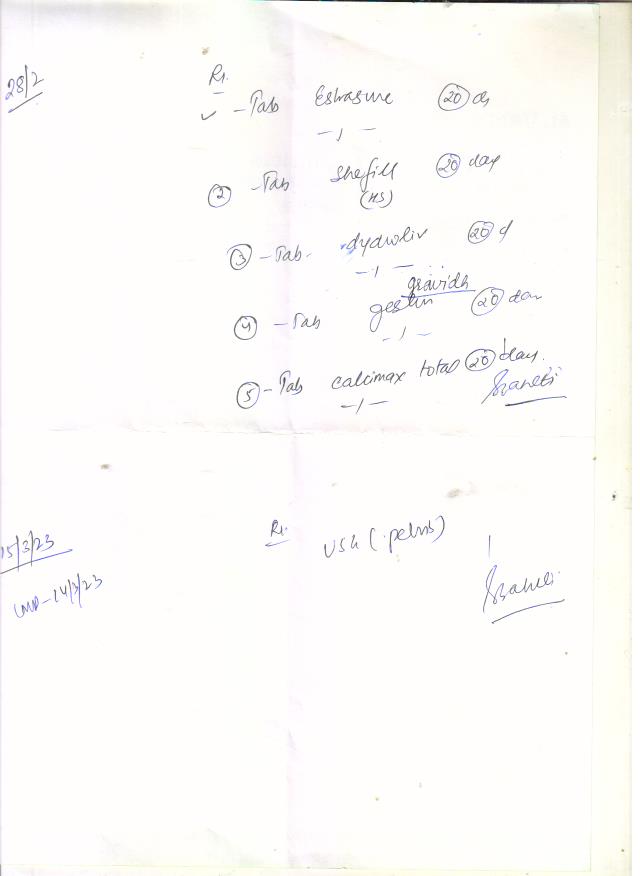 28/2
Rx.
✓ - Tab Estrasure (20) ds
- 1 -
(2) - Tab Shefill (20) day
(HS)
(3) - Tab - dydroliv (20) d
- 1 -
gravidh
(4) - Tab gestin (20) dan
- 1 -
(5) - Tab calcimax total (20) day.
- 1 -
15/3/23
Rx. USG (pelvis)
LMP - 14/3/23